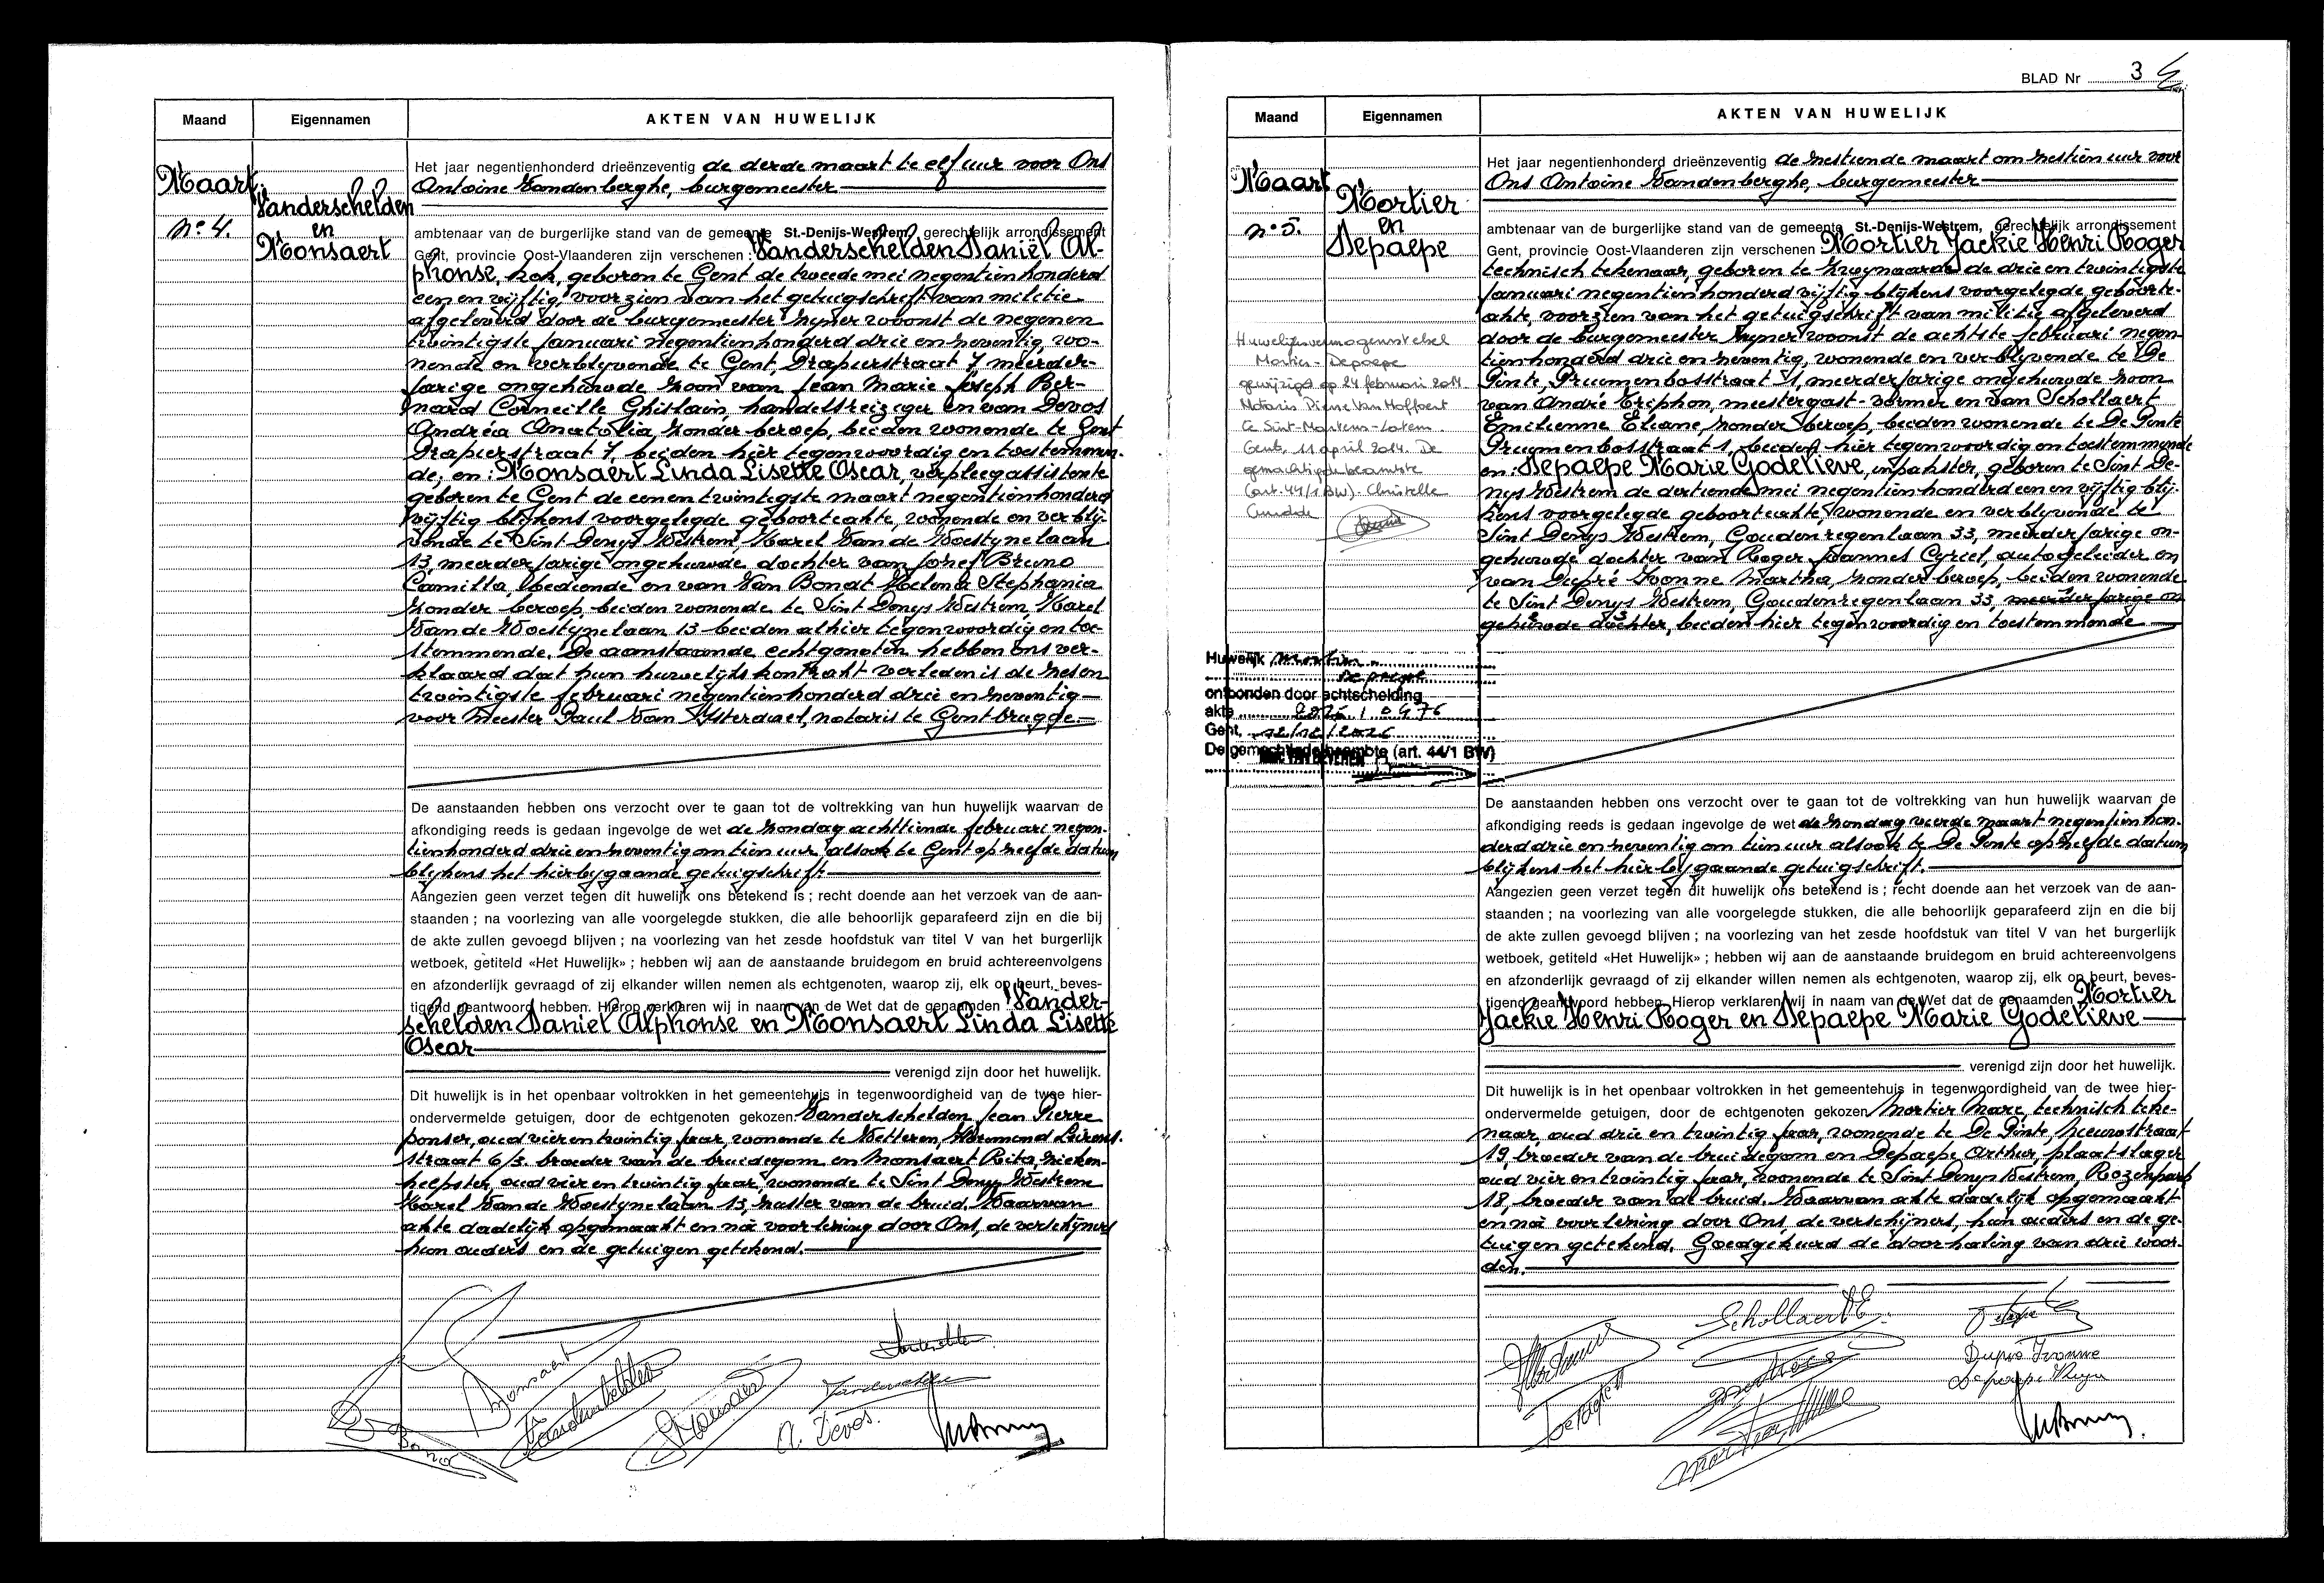 Maand
Eigennamen
AKTEN VAN HUWELIJK
Maart
nº 4.
Vanderschelden
en
Monsaert
Het jaar negentienhonderd drieënzeventig de derde maart te elf uur voor Ons
Antoine Vandenberghe, burgemeester
ambtenaar van de burgerlijke stand van de gemeente St.-Denijs-Westrem, gerechtelijk arrondissement
Gent, provincie Oost-Vlaanderen zijn verschenen : Vanderschelden Daniël Al-
phonse, kok, geboren te Gent de tweede mei negentienhonderd
een en vijftig, voorzien van het getuigschrift van militie
afgeleverd door de burgemeester zijner woonst de negenen
twintigste januari negentienhonderd drie en zeventig, wo-
nende en verblijvende te Gent, Drapierstraat 7 meerder-
jarige ongehuwde zoon van Jean Marie Joseph Ber-
nard Corneille Ghislain, handelsreiziger en van Devos
Andréa Anatolia, zonder beroep, beiden wonende te Gent
Drapierstraat 7, beiden hier tegenwoordig en toestemmen-
de; en : Monsaert Linda Lisette Oscar, verpleegassistente
geboren te Gent de eenen twintigste maart negentienhonderd
vijftig blijkens voorgelegde geboorteakte, wonende en verblij-
vende te Sint Denijs Westrem, Karel Van de Woestynelaan
13, meerderjarige ongehuwde dochter van Jozef Bruno
Camilla, bediende en van Van Bondt Helena Stephania
zonder beroep, beiden wonende te Sint Denys Westrem, Karel
Van de Woestijnelaan 13 beiden alhier tegenwoordig en toe-
stemmende. De aanstaande echtgenoten hebben ons ver-
klaard dat hun huwelijkskontrakt verleden is de zesen
twintigste februari negentienhonderd drie en zeventig
voor Meester Paul Van Ysterdael, notaris te Gentbrugge
De aanstaanden hebben ons verzocht over te gaan tot de voltrekking van hun huwelijk waarvan de
afkondiging reeds is gedaan ingevolge de wet de zondag achttiende februari negen-
tienhonderd drie en zeventig om tien uur alsook te Gent op zelfde datum
blijkens het hierbijgaande getuigschrift
Aangezien geen verzet tegen dit huwelijk ons betekend is ; recht doende aan het verzoek van de aan-
staanden ; na voorlezing van alle voorgelegde stukken, die alle behoorlijk geparafeerd zijn en die bij
de akte zullen gevoegd blijven ; na voorlezing van het zesde hoofdstuk van titel V van het burgerlijk
wetboek, getiteld «Het Huwelijk» ; hebben wij aan de aanstaande bruidegom en bruid achtereenvolgens
en afzonderlijk gevraagd of zij elkander willen nemen als echtgenoten, waarop zij, elk op beurt, beves-
tigend geantwoord hebben. Hierop verklaren wij in naam van de Wet dat de genaamden Vander-
schelden Daniel Alphonse en Monsaert Linda Lisette
Oscar
verenigd zijn door het huwelijk.
Dit huwelijk is in het openbaar voltrokken in het gemeentehuis in tegenwoordigheid van de twee hier-
ondervermelde getuigen, door de echtgenoten gekozen. Vanderschelden Jean Pierre
ponser, oud vier en twintig jaar, wonende te Wetteren,
straat 6/3. broeder van de bruidegom en Monsaert Rita, zieken-
helpster, oud vier en twintig jaar, wonende te Sint Denys Westrem
Karel Van de Woestynelaan 13, zuster van de bruid. Waarvan
akte dadelijk opgemaakt en na voorlezing door Ons, de verschijners
hun ouders en de getuigen getekend.
Monsaert
A. Devos.
BLAD Nr 3
Maand
Eigennamen
AKTEN VAN HUWELIJK
Maart
nº 5.
Mortier
en
Depaepe
Huwelijksvermogensstelsel
Mortier - Depaepe
gewijzigd op 24 februari 2014
Notaris Pierre Van Hoffaert
te Sint-Martens-Latem.
Gent, 11 april 2014. De
gemachtigde beambte
(art. 44/1 BW). Christelle
Huwelijk Mortier
Depaepe
ontbonden door echtscheiding
akte
Gent,
De gemachtigde beambte (art. 44/1 BW)
Het jaar negentienhonderd drieënzeventig de zestiende maart om zestien uur voor
Ons Antoine Vandenberghe, burgemeester
ambtenaar van de burgerlijke stand van de gemeente St.-Denijs-Westrem, gerechtelijk arrondissement
Gent, provincie Oost-Vlaanderen zijn verschenen : Mortier Jackie Henri Roger
technisch tekenaar, geboren te Zwynaarde de drie en twintigste
januari negentienhonderd vijftig blijkens voorgelegde geboorte-
akte, voorzien van het getuigschrift van militie afgeleverd
door de burgemeester zijner woonst de achtste februari negen-
tienhonderd drie en zeventig, wonende en verblijvende te De
Pinte, Pruimenbosstraat 1, meerderjarige ongehuwde zoon
van André Triphon, meestergast-vormer en van Schollaert
Emilienne Eliane, zonder beroep, beiden wonende te De Pinte
Pruimenbosstraat 1, beiden hier tegenwoordig en toestemmende
en : Depaepe Marie Godelieve, inpakster, geboren te Sint De-
nys Westrem de dertiende mei negentienhonderd een en vijftig blij-
kens voorgelegde geboorteakte, wonende en verblijvende te
Sint Denys Westrem, Goudenregenlaan 33, meerderjarige on-
gehuwde dochter van Roger Joannes Cyriel, autogeleider en
van Dupré Yvonne Martha, zonder beroep, beiden wonende
te Sint Denys Westrem, Goudenregenlaan 33, meerderjarige on
gehuwde dochter, beiden hier tegenwoordig en toestemmende
De aanstaanden hebben ons verzocht over te gaan tot de voltrekking van hun huwelijk waarvan de
afkondiging reeds is gedaan ingevolge de wet de zondag vierde maart negentienhon-
derd drie en zeventig om tien uur alsook te De Pinte op zelfde datum
blijkens het hierbijgaande getuigschrift.
Aangezien geen verzet tegen dit huwelijk ons betekend is ; recht doende aan het verzoek van de aan-
staanden ; na voorlezing van alle voorgelegde stukken, die alle behoorlijk geparafeerd zijn en die bij
de akte zullen gevoegd blijven ; na voorlezing van het zesde hoofdstuk van titel V van het burgerlijk
wetboek, getiteld «Het Huwelijk» ; hebben wij aan de aanstaande bruidegom en bruid achtereenvolgens
en afzonderlijk gevraagd of zij elkander willen nemen als echtgenoten, waarop zij, elk op beurt, beves-
tigend geantwoord hebben. Hierop verklaren wij in naam van de Wet dat de genaamden Mortier
Jackie Henri Roger en Depaepe Marie Godelieve
verenigd zijn door het huwelijk.
Dit huwelijk is in het openbaar voltrokken in het gemeentehuis in tegenwoordigheid van de twee hier-
ondervermelde getuigen, door de echtgenoten gekozen Mortier Marc, technisch teke-
naar, oud drie en twintig jaar, wonende te De Pinte, Nieuwstraat
19, broeder van de bruidegom en Depaepe Arthur, plaatslager
oud vier en twintig jaar, wonende te Sint Denys Westrem, Rozenpark
18, broeder van de bruid. Waarvan akte dadelijk opgemaakt
en na voorlezing door Ons, de verschijners, hun ouders en de ge-
tuigen getekend. Goedgekeurd de doorhaling van drie woor-
den.
Schollaert E.
Dupré Ivonne
Depaepe Roger